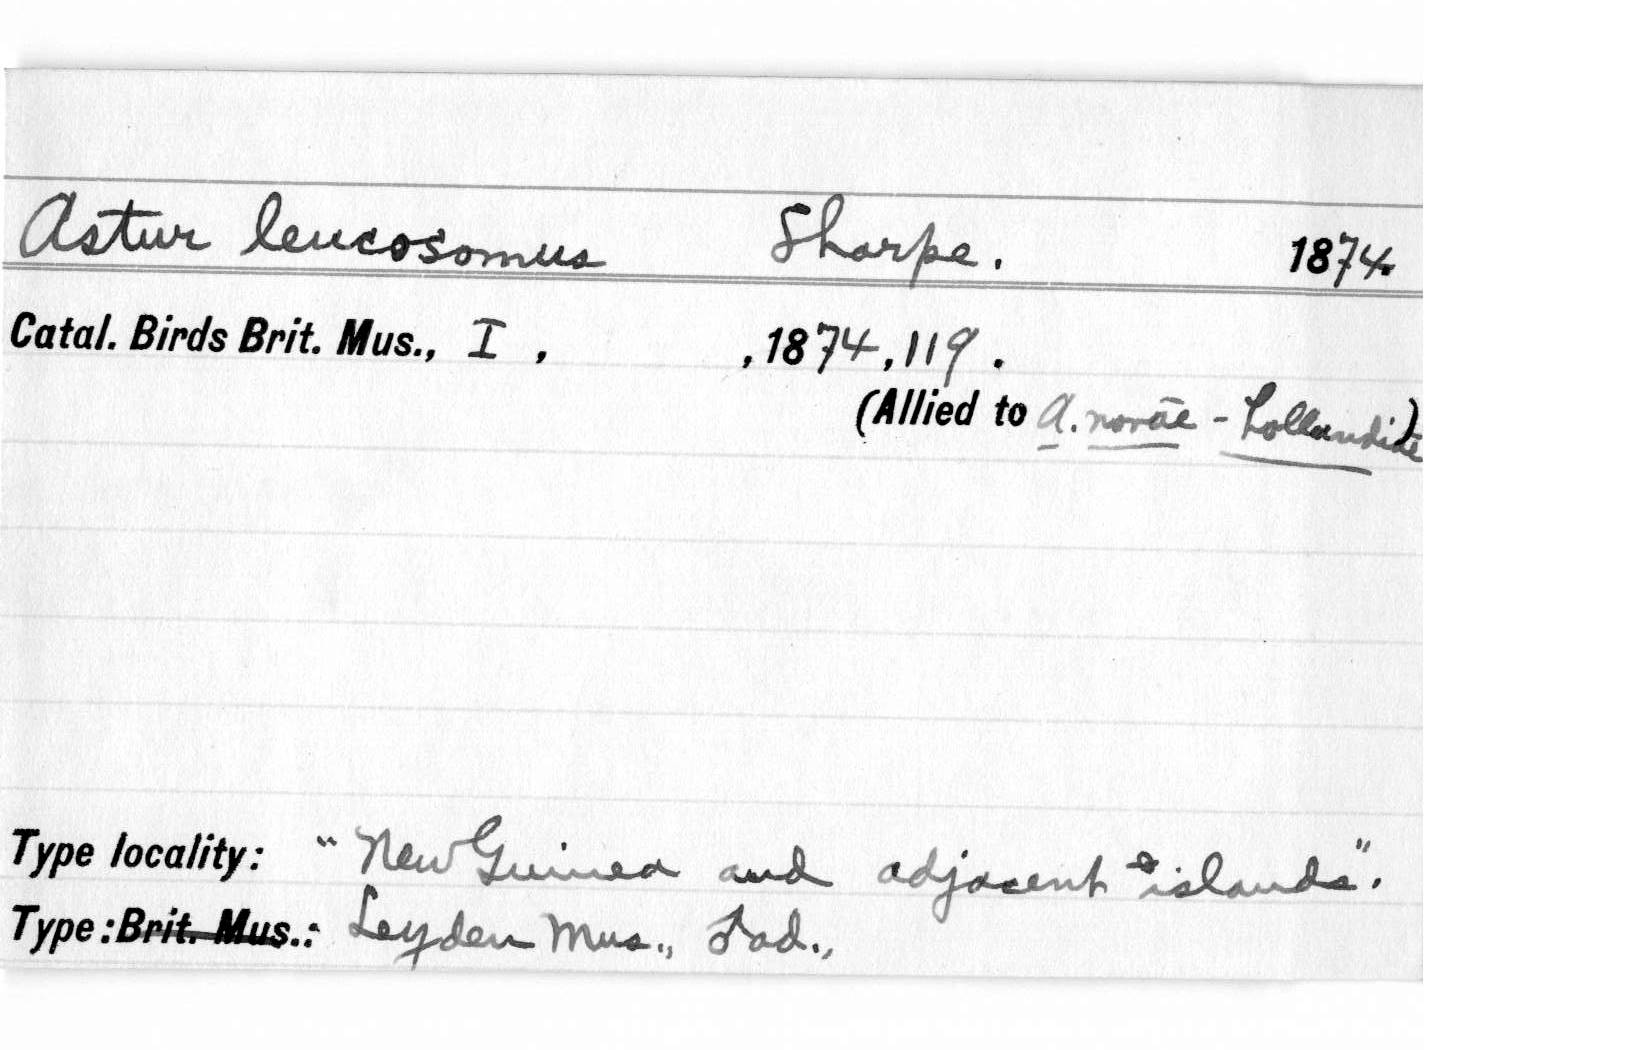 Astur leucosomus Sharpe. 1874.
Catal. Birds Brit. Mus., I , , 1874, 119 .
(Allied to A. novae - hollandiae)
Type locality: "New Guinea and adjacent islands".
Type: Brit. Mus.: Leyden Mus., ♂ ad.,